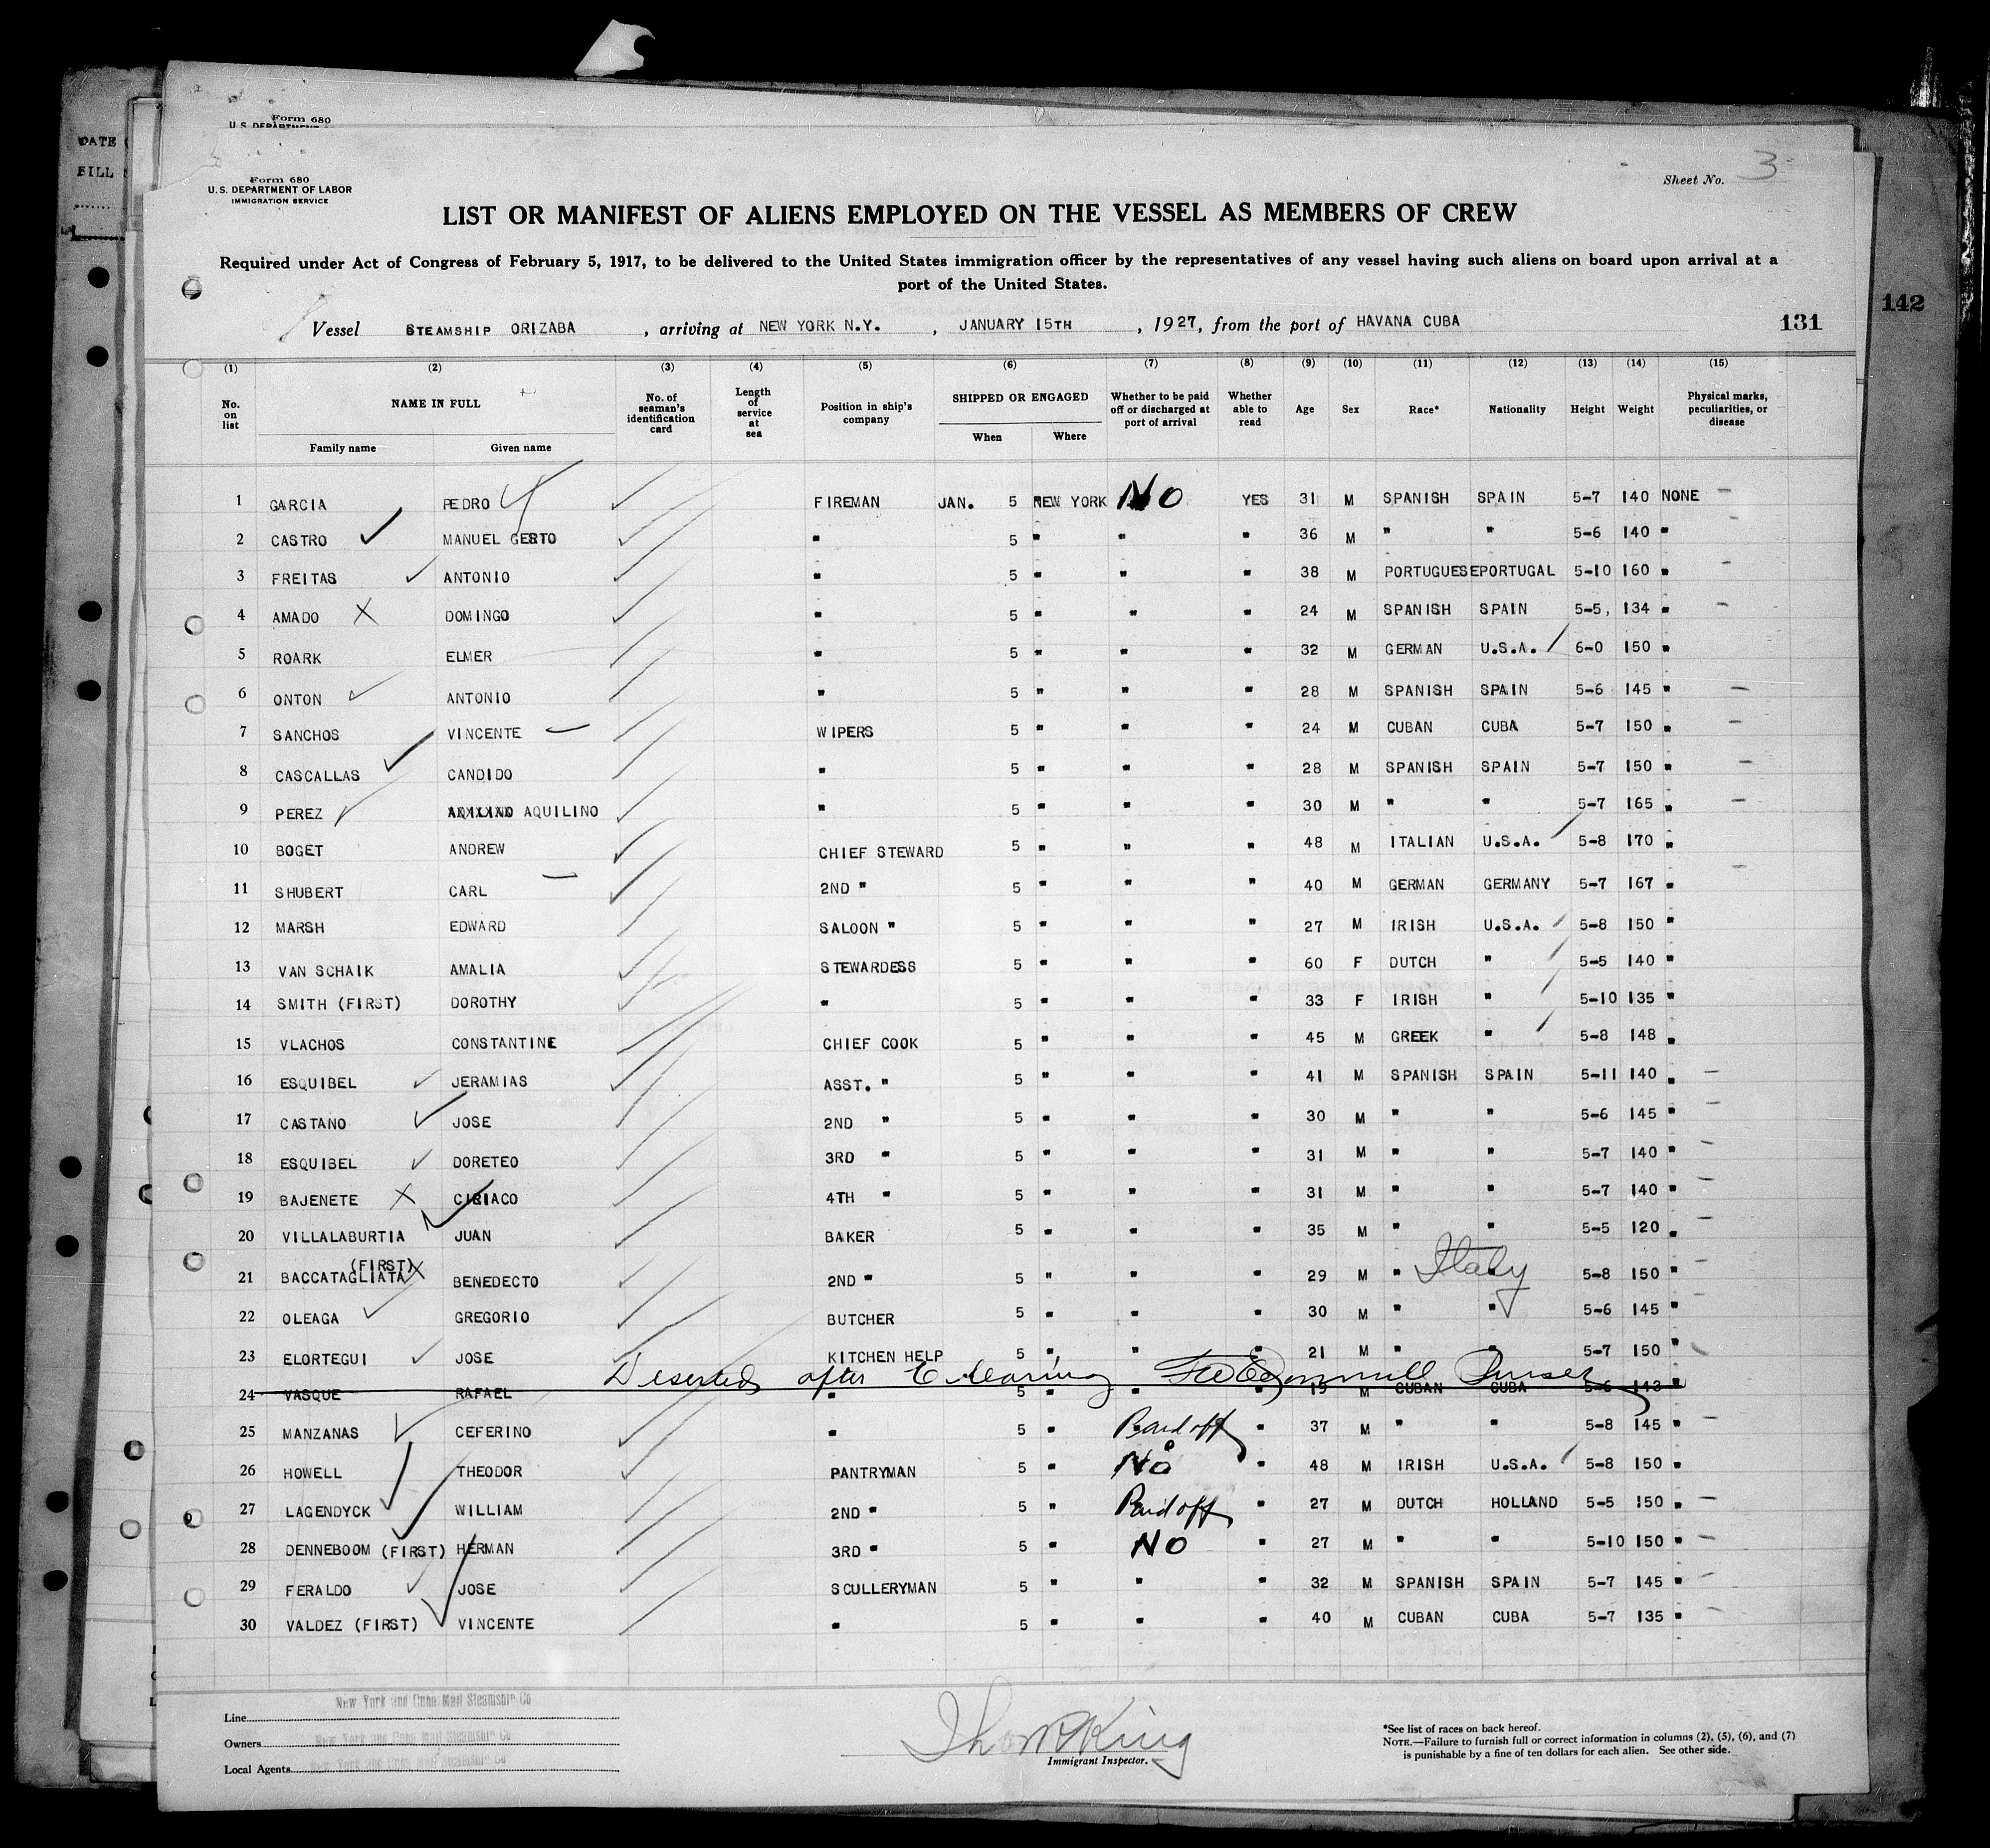 DATE
BILL
Form 680
U.S. DEPARTMENT
Form 680
U.S. DEPARTMENT OF LABOR
IMMIGRATION SERVICE
Sheet No. 3
LIST OR MANIFEST OF ALIENS EMPLOYED ON THE VESSEL AS MEMBERS OF CREW
Required under Act of Congress of February 5, 1917, to be delivered to the United States immigration officer by the representatives of any vessel having such aliens on board upon arrival at a
port of the United States.
142
Vessel STEAMSHIP ORIZABA, arriving at NEW YORK N.Y., JANUARY 15TH, 1927, from the port of HAVANA CUBA 131
(1) (2) (3) (4) (5) (6) (7) (8) (9) (10) (11) (12) (13) (14) (15)
No. on list NAME IN FULL Family name Given name No. of seaman's identification card Length of service at sea Position in ship's company SHIPPED OR ENGAGED When Where Whether to be paid off or discharged at port of arrival Whether able to read Age Sex Race* Nationality Height Weight Physical marks, peculiarities, or disease
1 GARCIA PEDRO FIREMAN JAN. 5 NEW YORK No YES 31 M SPANISH SPAIN 5-7 140 NONE
2 CASTRO MANUEL GESTO " 5 " " " 36 M " " 5-6 140 "
3 FREITAS ANTONIO " 5 " " " 38 M PORTUGUESE PORTUGAL 5-10 160 "
4 AMADO DOMINGO " 5 " " " 24 M SPANISH SPAIN 5-5, 134 "
5 ROARK ELMER " 5 " " " 32 M GERMAN U.S.A. 6-0 150 "
6 ONTON ANTONIO " 5 " " " 28 M SPANISH SPAIN 5-6 145 "
7 SANCHOS VINCENTE WIPERS 5 " " " 24 M CUBAN CUBA 5-7 150 "
8 CASCALLAS CANDIDO " 5 " " " 28 M SPANISH SPAIN 5-7 150 "
9 PEREZ AQUILINO " 5 " " " 30 M " " 5-7 165 "
10 BOGET ANDREW CHIEF STEWARD 5 " " " 48 M ITALIAN U.S.A. 5-8 170 "
11 SHUBERT CARL 2ND " 5 " " " 40 M GERMAN GERMANY 5-7 167 "
12 MARSH EDWARD SALOON " 5 " " " 27 M IRISH U.S.A. 5-8 150 "
13 VAN SCHAIK AMALIA STEWARDESS 5 " " " 60 F DUTCH " 5-5 140 "
14 SMITH (FIRST) DOROTHY " 5 " " " 33 F IRISH " 5-10 135 "
15 VLACHOS CONSTANTINE CHIEF COOK 5 " " " 45 M GREEK " 5-8 148 "
16 ESQUIBEL JERAMIAS ASST. " 5 " " " 41 M SPANISH SPAIN 5-11 140 "
17 CASTANO JOSE 2ND " 5 " " " 30 M " " 5-6 145 "
18 ESQUIBEL DORETEO 3RD " 5 " " " 31 M " " 5-7 140 "
19 BAJENETE CIRIACO 4TH " 5 " " " 31 M " " 5-7 140 "
20 VILLALABURTIA JUAN BAKER 5 " " " 35 M " " 5-5 120 "
21 BACCATAGLIATA (FIRST) BENEDECTO 2ND " 5 " " " 29 M " " Italy 5-8 150 "
22 OLEAGA GREGORIO BUTCHER 5 " " " 30 M " " 5-6 145 "
23 ELORTEGUI JOSE KITCHEN HELP 5 " " " 21 M " " 5-7 150 "
Deserted after Clearing Purser
24 VASQUE RAFAEL " 5 " " " 19 M CUBAN CUBA 5-6 143 "
25 MANZANAS CEFERINO " 5 " Paid off " 37 M " " 5-8 145 "
26 HOWELL THEODOR PANTRYMAN 5 " No " 48 M IRISH U.S.A. 5-8 150 "
27 LAGENDYCK WILLIAM 2ND " 5 " Paid off " 27 M DUTCH HOLLAND 5-5 150 "
28 DENNEBOOM (FIRST) HERMAN 3RD " 5 " NO " 27 M " " 5-10 150 "
29 FERALDO JOSE SCULLERYMAN 5 " " " 32 M SPANISH SPAIN 5-7 145 "
30 VALDEZ (FIRST) VINCENTE " 5 " " " 40 M CUBAN CUBA 5-7 135 "
Line New York and Cuba Mail Steamship Co
Owners New York and Cuba Mail Steamship Co
Local Agents New York and Cuba Mail Steamship Co
Thos R King
Immigrant Inspector.
*See list of races on back hereof.
NOTE.—Failure to furnish full or correct information in columns (2), (5), (6), and (7)
is punishable by a fine of ten dollars for each alien. See other side.